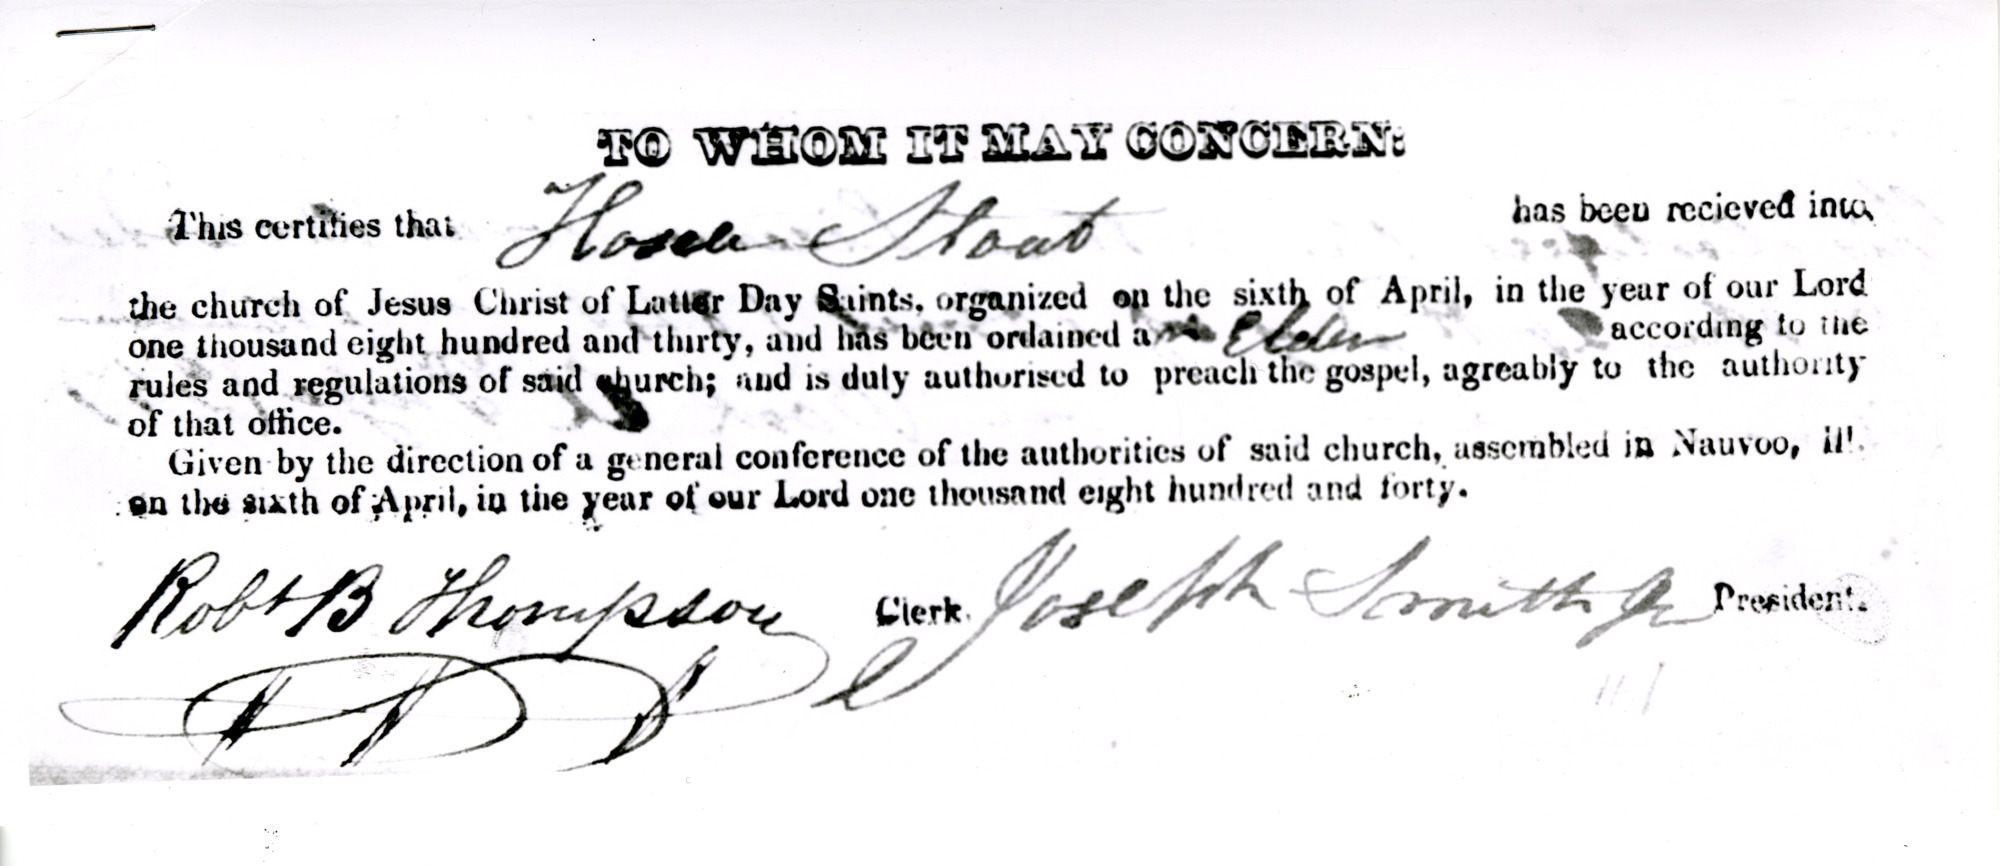 TO WHOM IT MAY CONCERN:
This certifies that Hosea Stout has been recieved into
the church of Jesus Christ of Latter Day Saints, organized on the sixth of April, in the year of our Lord
one thousand eight hundred and thirty, and has been ordained an Elder according to the
rules and regulations of said church; and is duly authorised to preach the gospel, agreably to the authority
of that office.
Given by the direction of a general conference of the authorities of said church, assembled in Nauvoo, Ill.
on the sixth of April, in the year of our Lord one thousand eight hundred and forty.
Robt B Thompson Clerk. Joseph Smith Jr President.